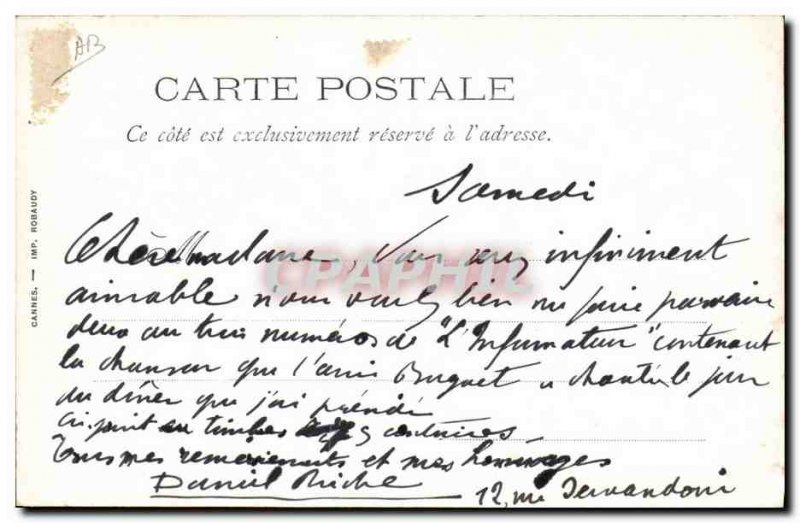 AB
CARTE POSTALE
Ce côté est exclusivement réservé à l'adresse.
CANNES. — IMP. ROBAUDY
CPAPHIL
Samedi
Chère Madame, Vous serez infiniment
aimable si vous voulez bien me faire parvenir
deux ou trois numéros de "L'Informateur" contenant
la chanson que l'ami Buguet a chantée le jour
du dîner que j'ai présidé
Ci-joint en timbres
Tous mes remerciements et mes hommages
Daniel Riche
12, rue Servandoni